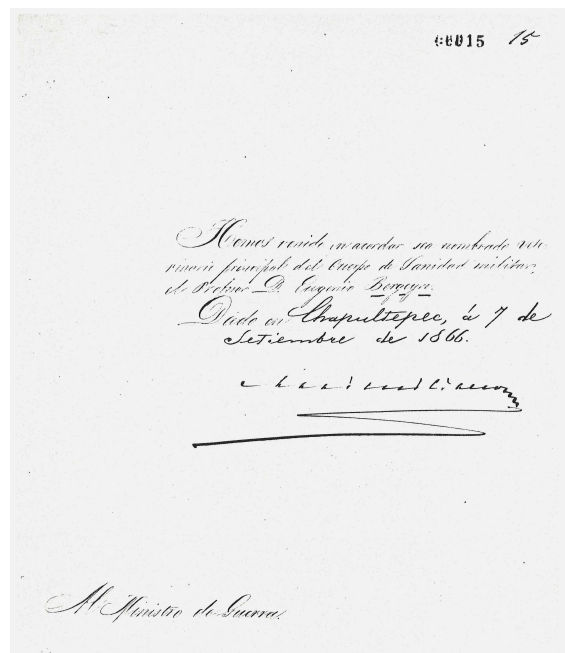 00015 15
Hemos venido en acordar sea nombrado vete-
rinario principal del Cuerpo de Sanidad militar,
el Profesor D. Eugenio Bergeyre.
Dado en Chapultepec, á 7 de
Setiembre de 1866.
Maximiliano
Al Ministro de Guerra.